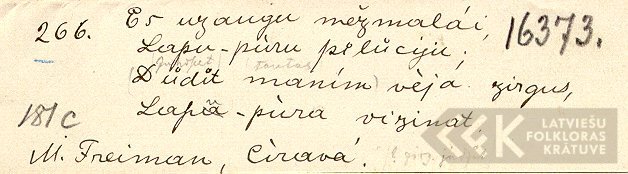 266. Es uzaugu mežmalái,
16373.
Lapu-pùru pìlùciju;
Dùdìt manim vèja zirgus,
Lapã-pùra vizinat.
181c
M. Freiman, Cìravá.
LATVIEŠU
FOLKLORAS
KRĀTUVE